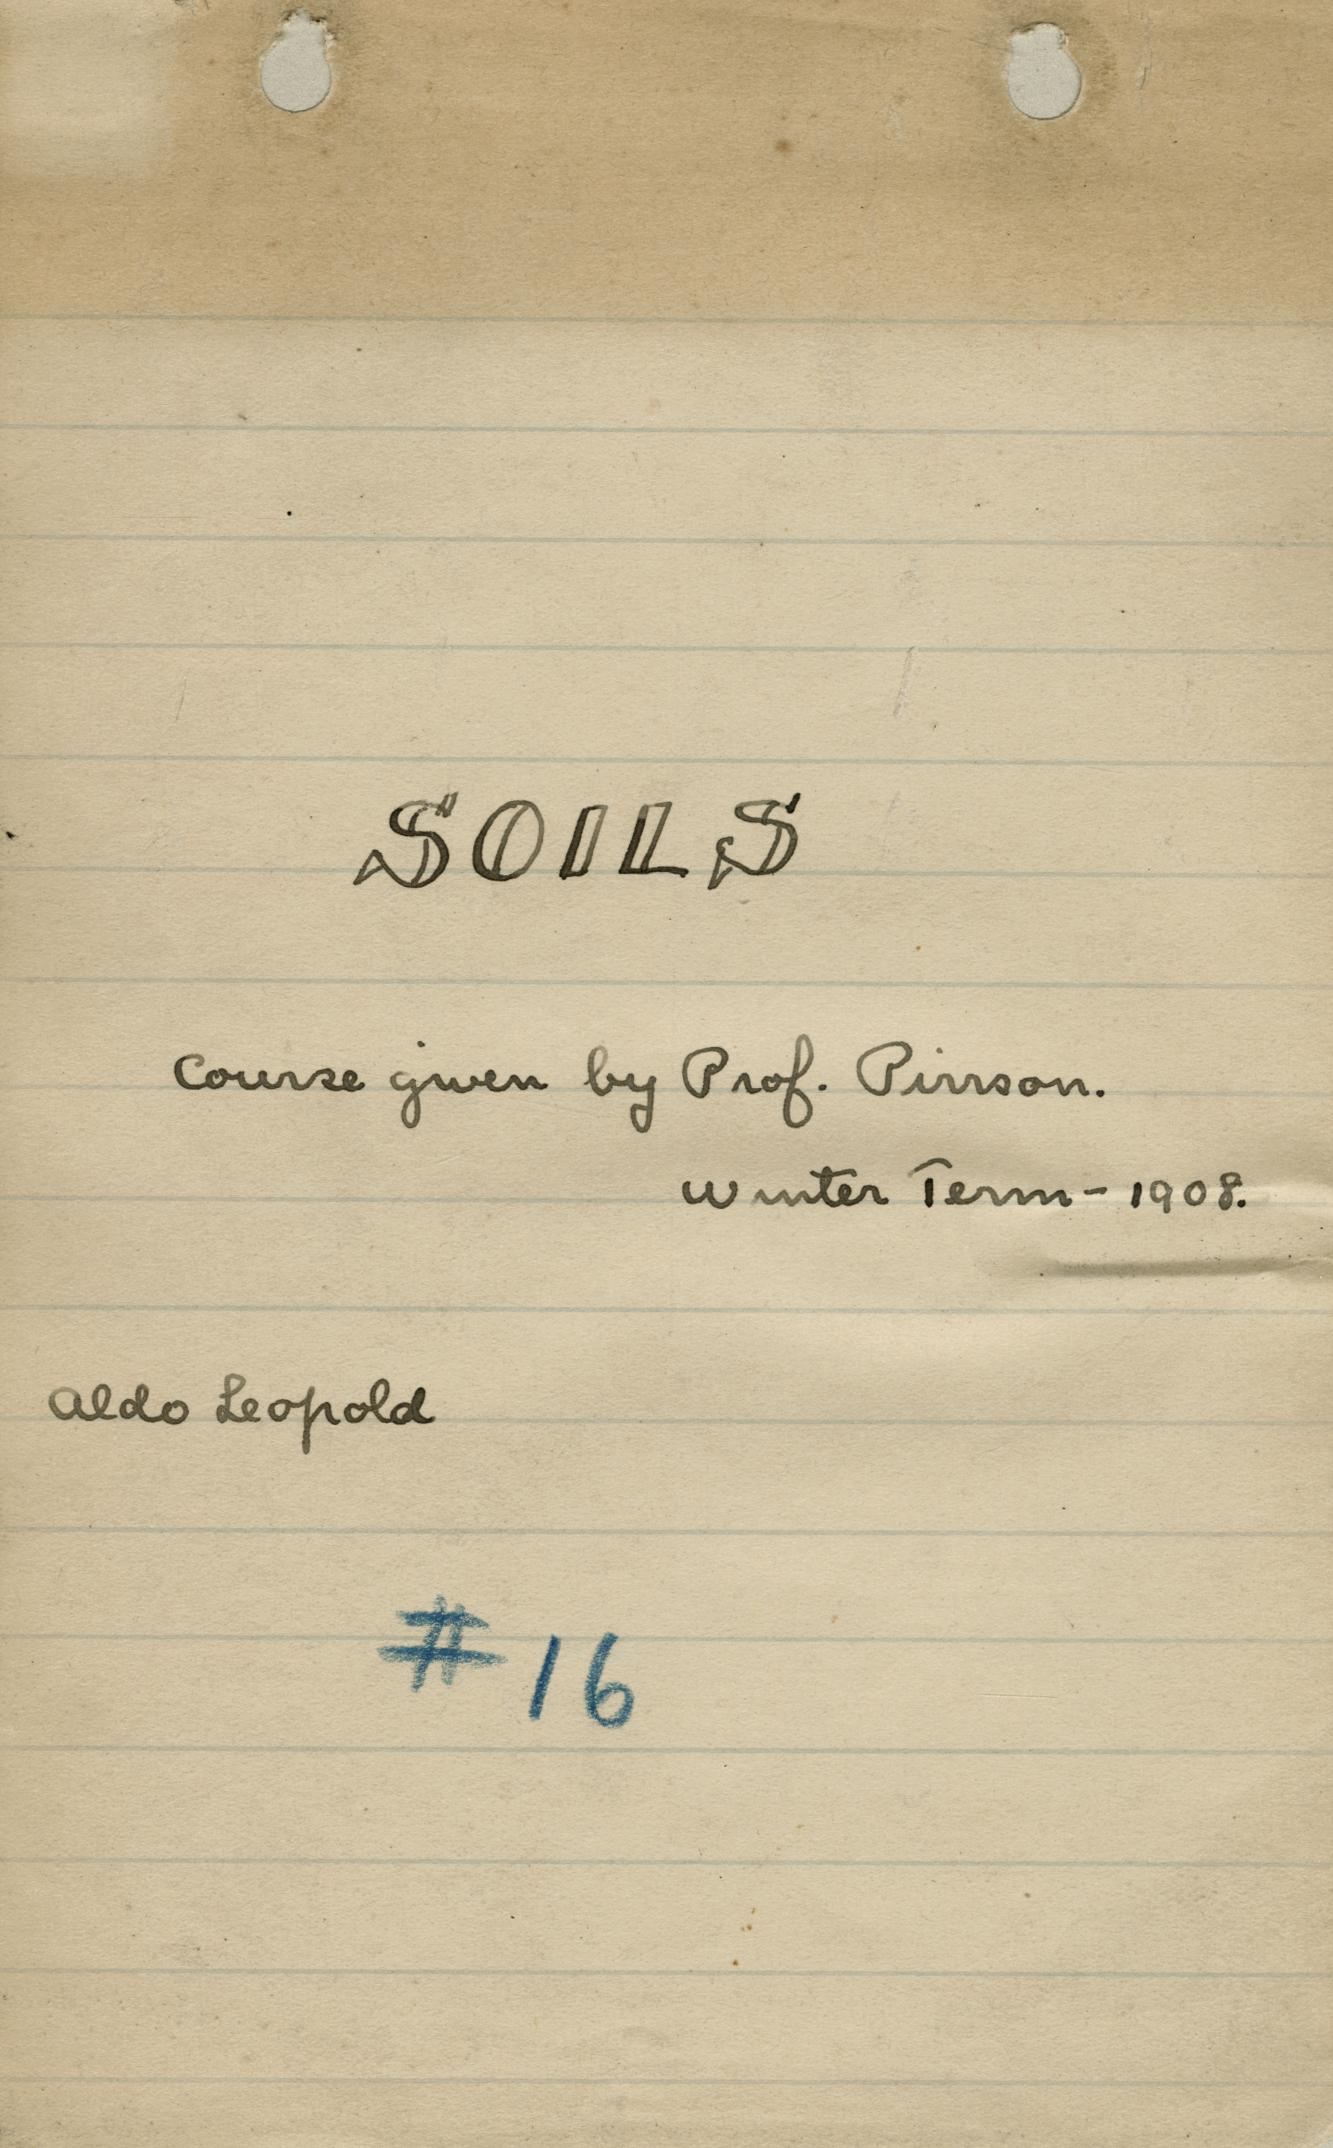 SOILS
Course given by Prof. Pirrson.
Winter Term - 1908.
Aldo Leopold
# 16